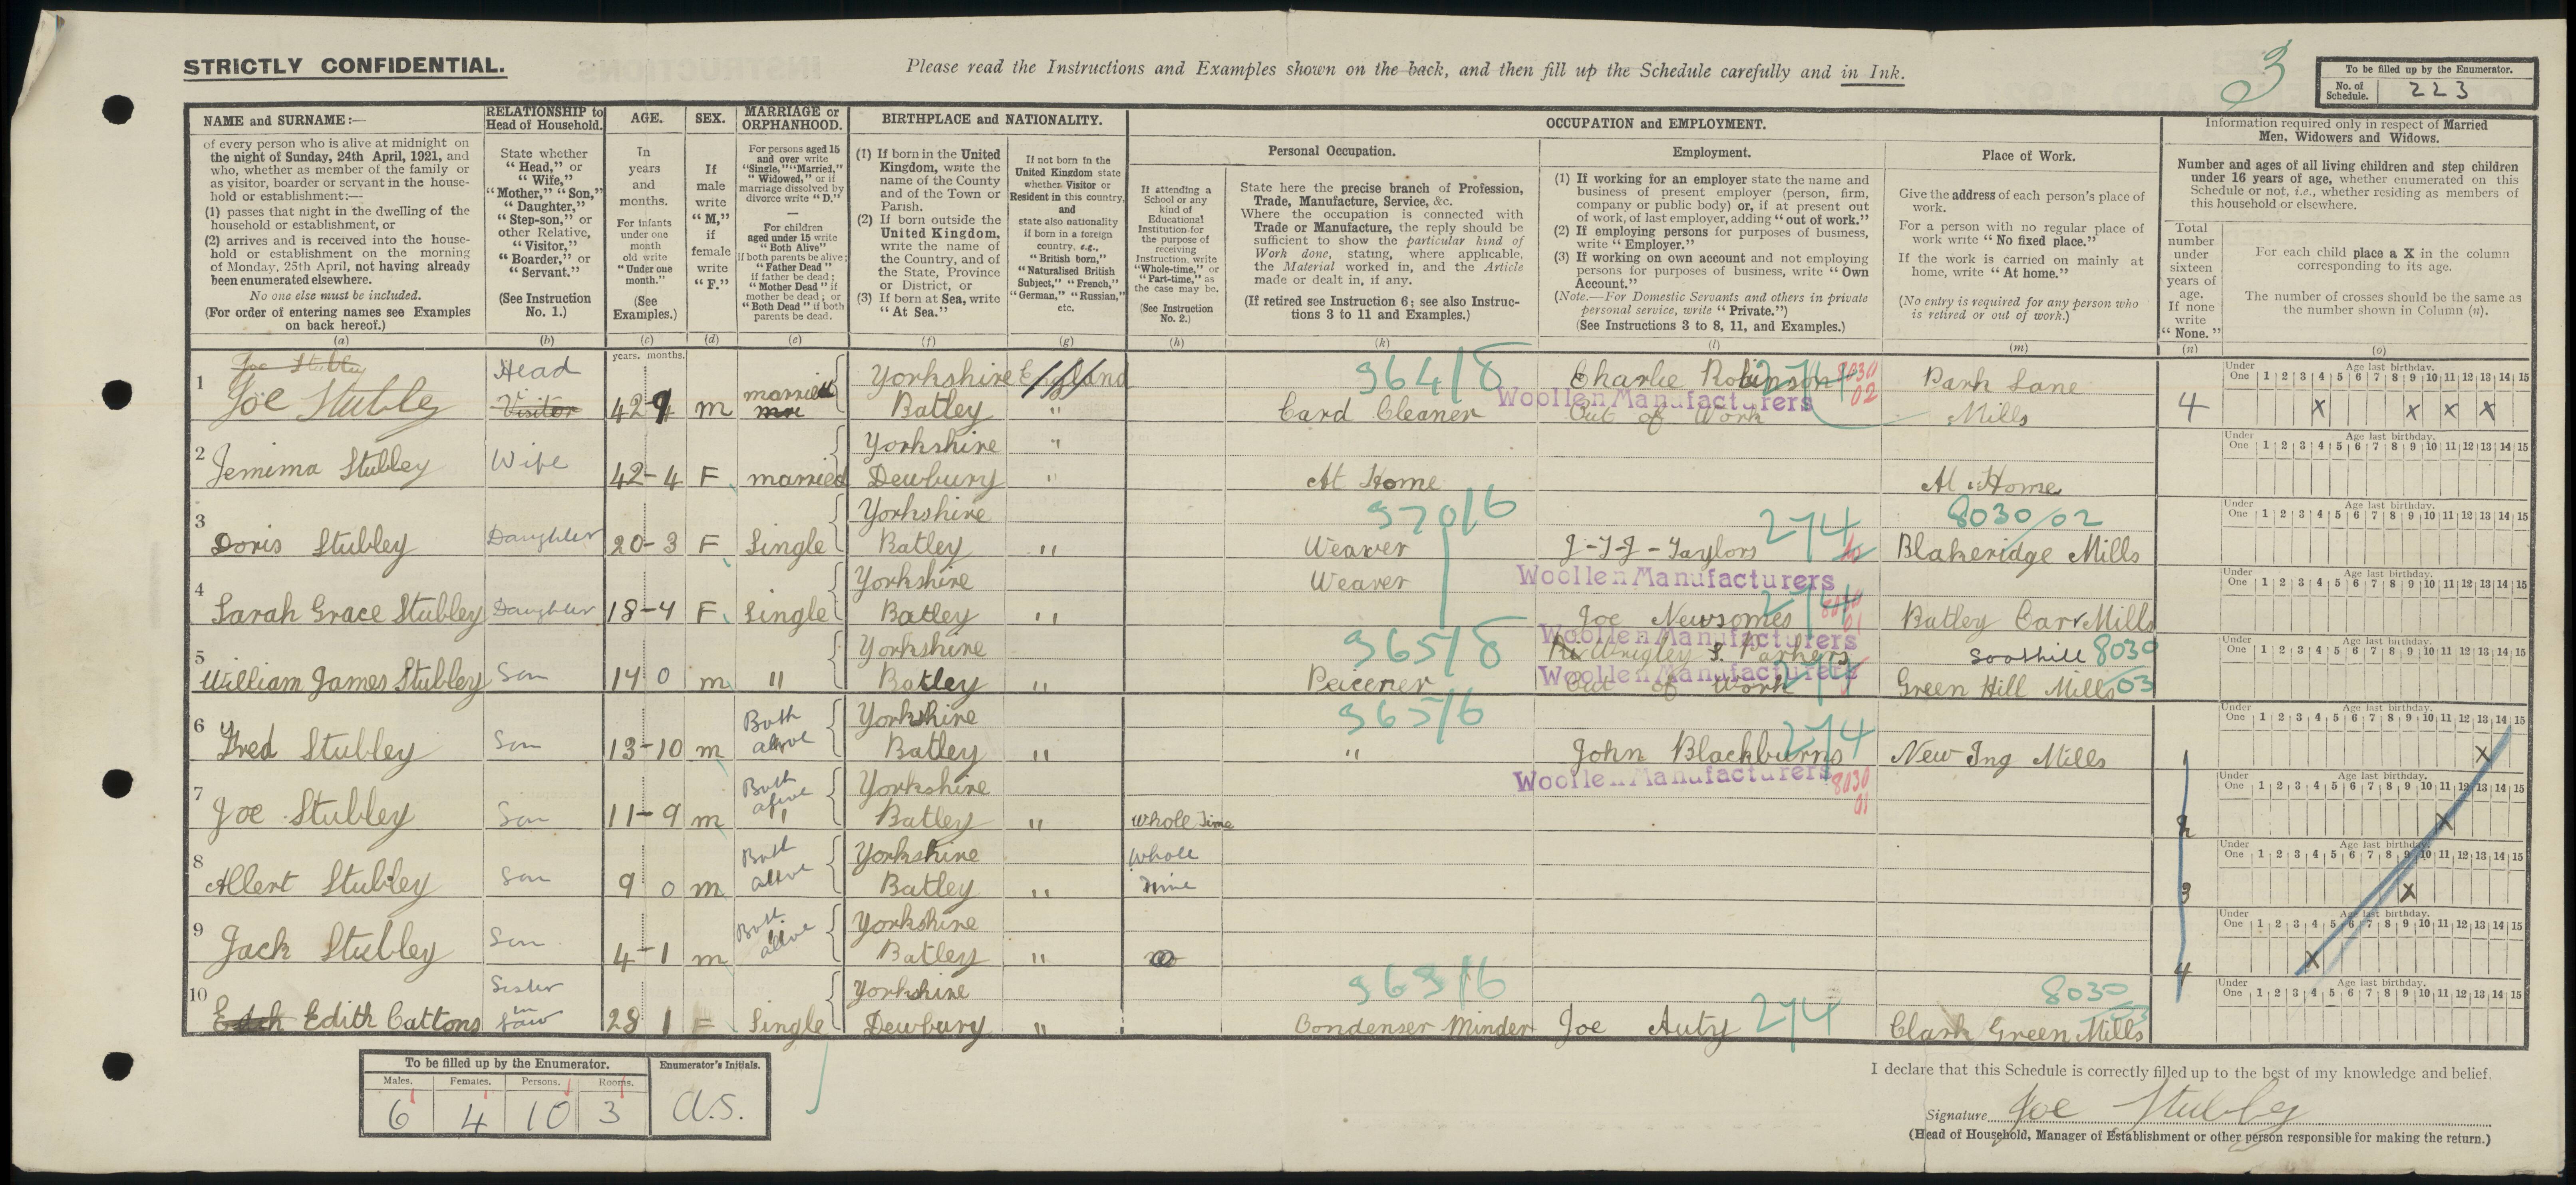 STRICTLY CONFIDENTIAL.
Please read the Instructions and Examples shown on the back, and then fill up the Schedule carefully and in Ink.
3
To be filled up by the Enumerator.
No. of Schedule. 223
NAME and SURNAME:—
of every person who is alive at midnight on
the night of Sunday, 24th April, 1921, and
who, whether as member of the family or
as visitor, boarder or servant in the house-
hold or establishment:—
(1) passes that night in the dwelling of the
household or establishment, or
(2) arrives and is received into the house-
hold or establishment on the morning
of Monday, 25th April, not having already
been enumerated elsewhere.
No one else must be included.
(For order of entering names see Examples
on back hereof.)
(a)
RELATIONSHIP to
Head of Household.
State whether
"Head," or
"Wife,"
"Mother," "Son,"
"Daughter,"
"Step-son," or
other Relative,
"Visitor,"
"Boarder," or
"Servant."
(See Instruction
No. 1.)
(b)
AGE.
In
years
and
months.
For infants
under one
month
old write
"Under one
month."
(See
Examples.)
(c)
SEX.
If
male
write
"M,"
if
female
write
"F."
(d)
MARRIAGE or
ORPHANHOOD.
For persons aged 15
and over write
"Single," "Married,"
"Widowed," or if
marriage dissolved by
divorce write "D."
—
For children
aged under 15 write
"Both Alive"
if both parents be alive;
"Father Dead"
if father be dead;
"Mother Dead" if
mother be dead; or
"Both Dead" if both
parents be dead.
(e)
BIRTHPLACE and NATIONALITY.
(1) If born in the United
Kingdom, write the
name of the County
and of the Town or
Parish.
(2) If born outside the
United Kingdom,
write the name of
the Country, and of
the State, Province
or District, or
(3) If born at Sea, write
"At Sea."
(f)
If not born in the
United Kingdom state
whether Visitor or
Resident in this country,
and
state also nationality
if born in a foreign
country, e.g.,
"British born,"
"Naturalised British
Subject," "French,"
"German," "Russian,"
etc.
(g)
OCCUPATION and EMPLOYMENT.
If attending a
School or any
kind of
Educational
Institution for
the purpose of
receiving
Instruction, write
"Whole-time," or
"Part-time," as
the case may be.
(See Instruction
No. 2.)
(h)
Personal Occupation.
State here the precise branch of Profession,
Trade, Manufacture, Service, &c.
Where the occupation is connected with
Trade or Manufacture, the reply should be
sufficient to show the particular kind of
Work done, stating, where applicable,
the Material worked in, and the Article
made or dealt in, if any.
(If retired see Instruction 6; see also Instruc-
tions 3 to 11 and Examples.)
(k)
Employment.
(1) If working for an employer state the name and
business of present employer (person, firm,
company or public body) or, if at present out
of work, of last employer, adding "out of work."
(2) If employing persons for purposes of business,
write "Employer."
(3) If working on own account and not employing
persons for purposes of business, write "Own
Account."
(Note.—For Domestic Servants and others in private
personal service, write "Private.")
(See Instructions 3 to 8, 11, and Examples.)
(l)
Place of Work.
Give the address of each person's place of
work.
For a person with no regular place of
work write "No fixed place."
If the work is carried on mainly at
home, write "At home."
(No entry is required for any person who
is retired or out of work.)
(m)
Information required only in respect of Married
Men, Widowers and Widows.
Number and ages of all living children and step children
under 16 years of age, whether enumerated on this
Schedule or not, i.e., whether residing as members of
this household or elsewhere.
Total
number
under
sixteen
years of
age.
If none
write
"None."
(n)
For each child place a X in the column
corresponding to its age.
The number of crosses should be the same as
the number shown in Column (n).
(o)
years. months.
Under One 1 2 3 4 5 6 7 8 9 10 11 12 13 14 15
Age last birthday.
Joe Stubley
1 Joe Stubley Head Visitor 42 9 m married Yorkshire Batley England " Card Cleaner 964/8 Charlie Robinson Out of Work Woollen Manufacturers 8030 02 Park Lane Mills 4 X X X X
2 Jemima Stubley Wife 42-4 F married Yorkshire Dewbury " " At Home At Home
3 Doris Stubley Daughter 20-3 F Single Yorkshire Batley " 970/6 Weaver J-T-J-Taylors 274 Woollen Manufacturers 8030/02 Blakeridge Mills
4 Sarah Grace Stubley Daughter 18-4 F Single Yorkshire Batley " Weaver Joe Newsomes Woollen Manufacturers Batley Carr Mills
5 William James Stubley Son 14 0 m " Yorkshire Batley " 965/8 Peicener Wrigley & Parkers Out of Work Woollen Manufacturers Soothill Green Hill Mills 8030 03
6 Fred Stubley Son 13-10 m Both alive Yorkshire Batley " 965/6 " John Blackburns 274 Woollen Manufacturers 8030 01 New Ing Mills 1 X
7 Joe Stubley Son 11-9 m Both alive " Yorkshire Batley " Whole Time 2 X
8 Albert Stubley Son 9 0 m Both alive Yorkshire Batley " Whole Time 3 X
9 Jack Stubley Son 4-1 m Both alive Yorkshire Batley " 4 X
10 Edith Cattons Sister in Law 28 1 F Single Yorkshire Dewbury " 963/6 Condenser Minder Joe Auty 274 8030 03 Clark Green Mills
To be filled up by the Enumerator.
Males. Females. Persons. Rooms.
6 4 10 3
Enumerator's Initials.
A.S.
I declare that this Schedule is correctly filled up to the best of my knowledge and belief.
Signature Joe Stubley
(Head of Household, Manager of Establishment or other person responsible for making the return.)